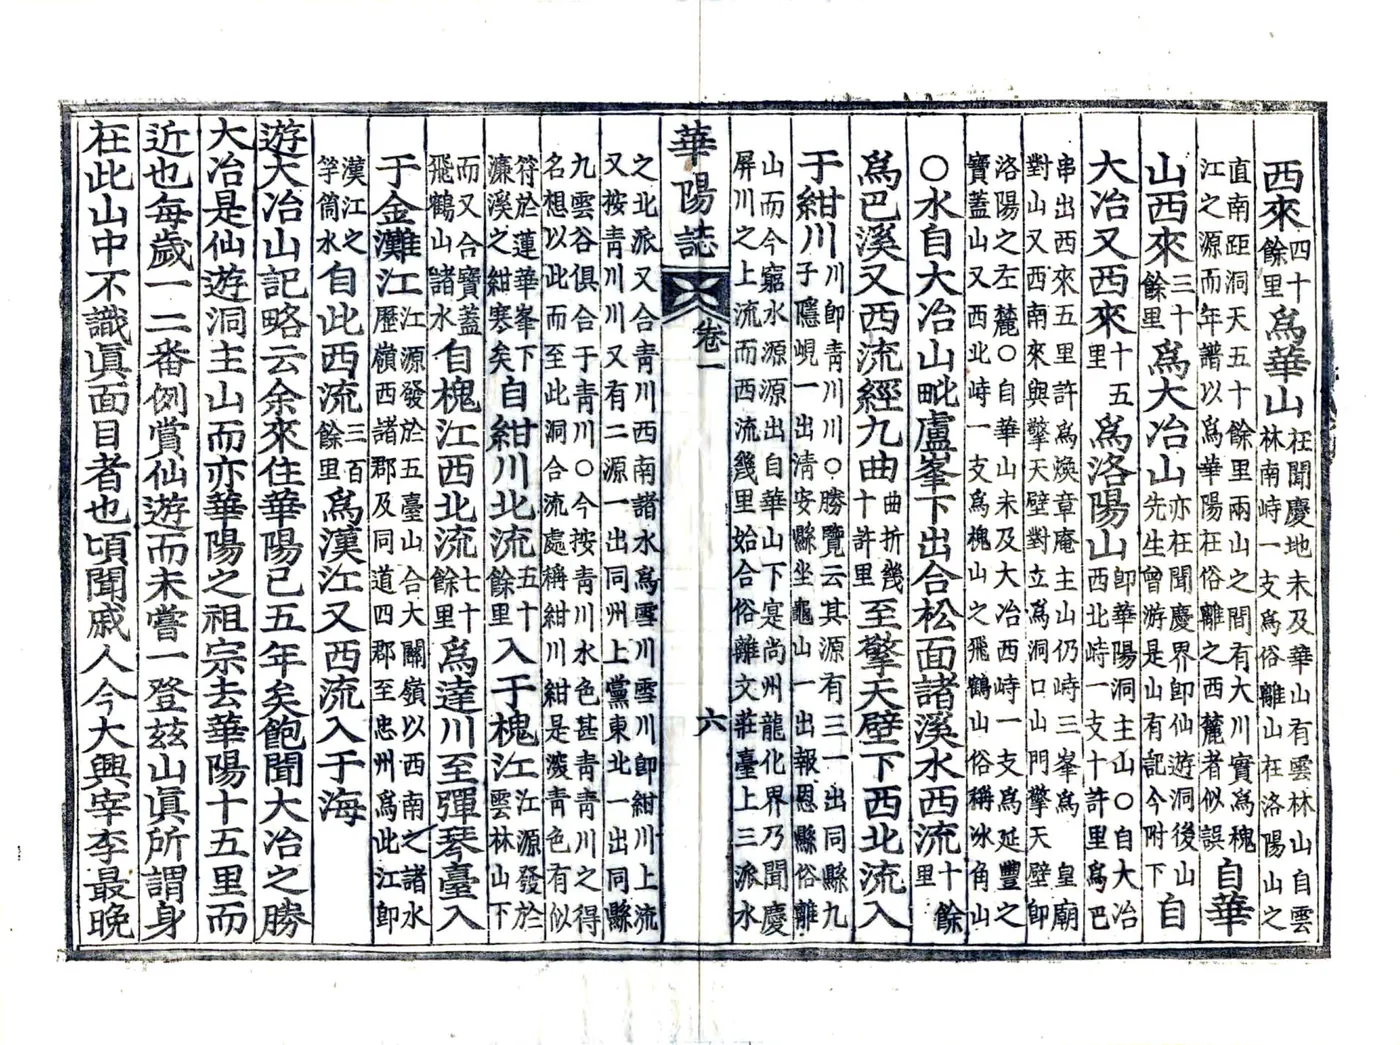 西來四十餘里爲華山在聞慶地未及華山有雲林山自雲林南峙一支爲俗離山在洛陽山之
直南距洞天五十餘里兩山之間有大川實爲槐江之源而年譜以爲華陽在俗離之西麓者似誤自華
山西來三十餘里爲大冶山亦在聞慶界卽仙遊洞後山先生曾游是山有記今附下自
大冶又西來十五里爲洛陽山卽華陽洞主山○自大冶西北峙一支十許里爲巴
串出西來五里許爲煥章庵主山仍峙三峯爲 皇廟對山又西南來與擎天壁對立爲洞口山門擎天壁卽
洛陽之左麓○自華山未及大冶西峙一支爲延豐之寶蓋山又西北峙一支爲槐山之飛鶴山俗稱冰角山
○水自大冶山毗盧峯下出合松面諸溪水西流十餘里
爲巴溪又西流經九曲曲折幾十許里至擎天壁下西北流入
于紺川川卽靑川川○勝覽云其源有三一出同縣九子隱峴一出淸安縣坐龜山一出報恩縣俗離
山而今窮水源源出自華山下寔尙州龍化界乃聞慶屛川之上流而西流幾里始合俗離文莊臺上三派水
華陽誌 卷一 六
之北派又合靑川西南諸水爲雪川雪川卽紺川上流又按靑川川又有二源一出同州上黨東北一出同縣
九雲谷俱合于靑川○今按靑川水色甚靑靑川之得名想以此而至此洞合流處稱紺川紺是淡靑色有似
符於蓮華峯下濂溪之紺寒矣自紺川北流五十餘里入于槐江江源發於雲林山下
而又合寶蓋飛鶴山諸水自槐江西北流七十餘里爲達川至彈琴臺入
于金灘江江源發於五臺山合大關嶺以西南之諸水歷嶺西諸郡及同道四郡至忠州爲此江卽
漢江之竽筒水自此西流三百餘里爲漢江又西流入于海
遊大冶山記略云余來住華陽已五年矣飽聞大冶之勝
大冶是仙遊洞主山而亦華陽之祖宗去華陽十五里而
近也每歲一二番例賞仙遊而未嘗一登玆山眞所謂身
在此山中不識眞面目者也頃聞戚人今大興宰李最晩